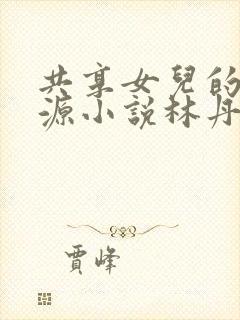 共享女兒的
源小説林丹
賈峰